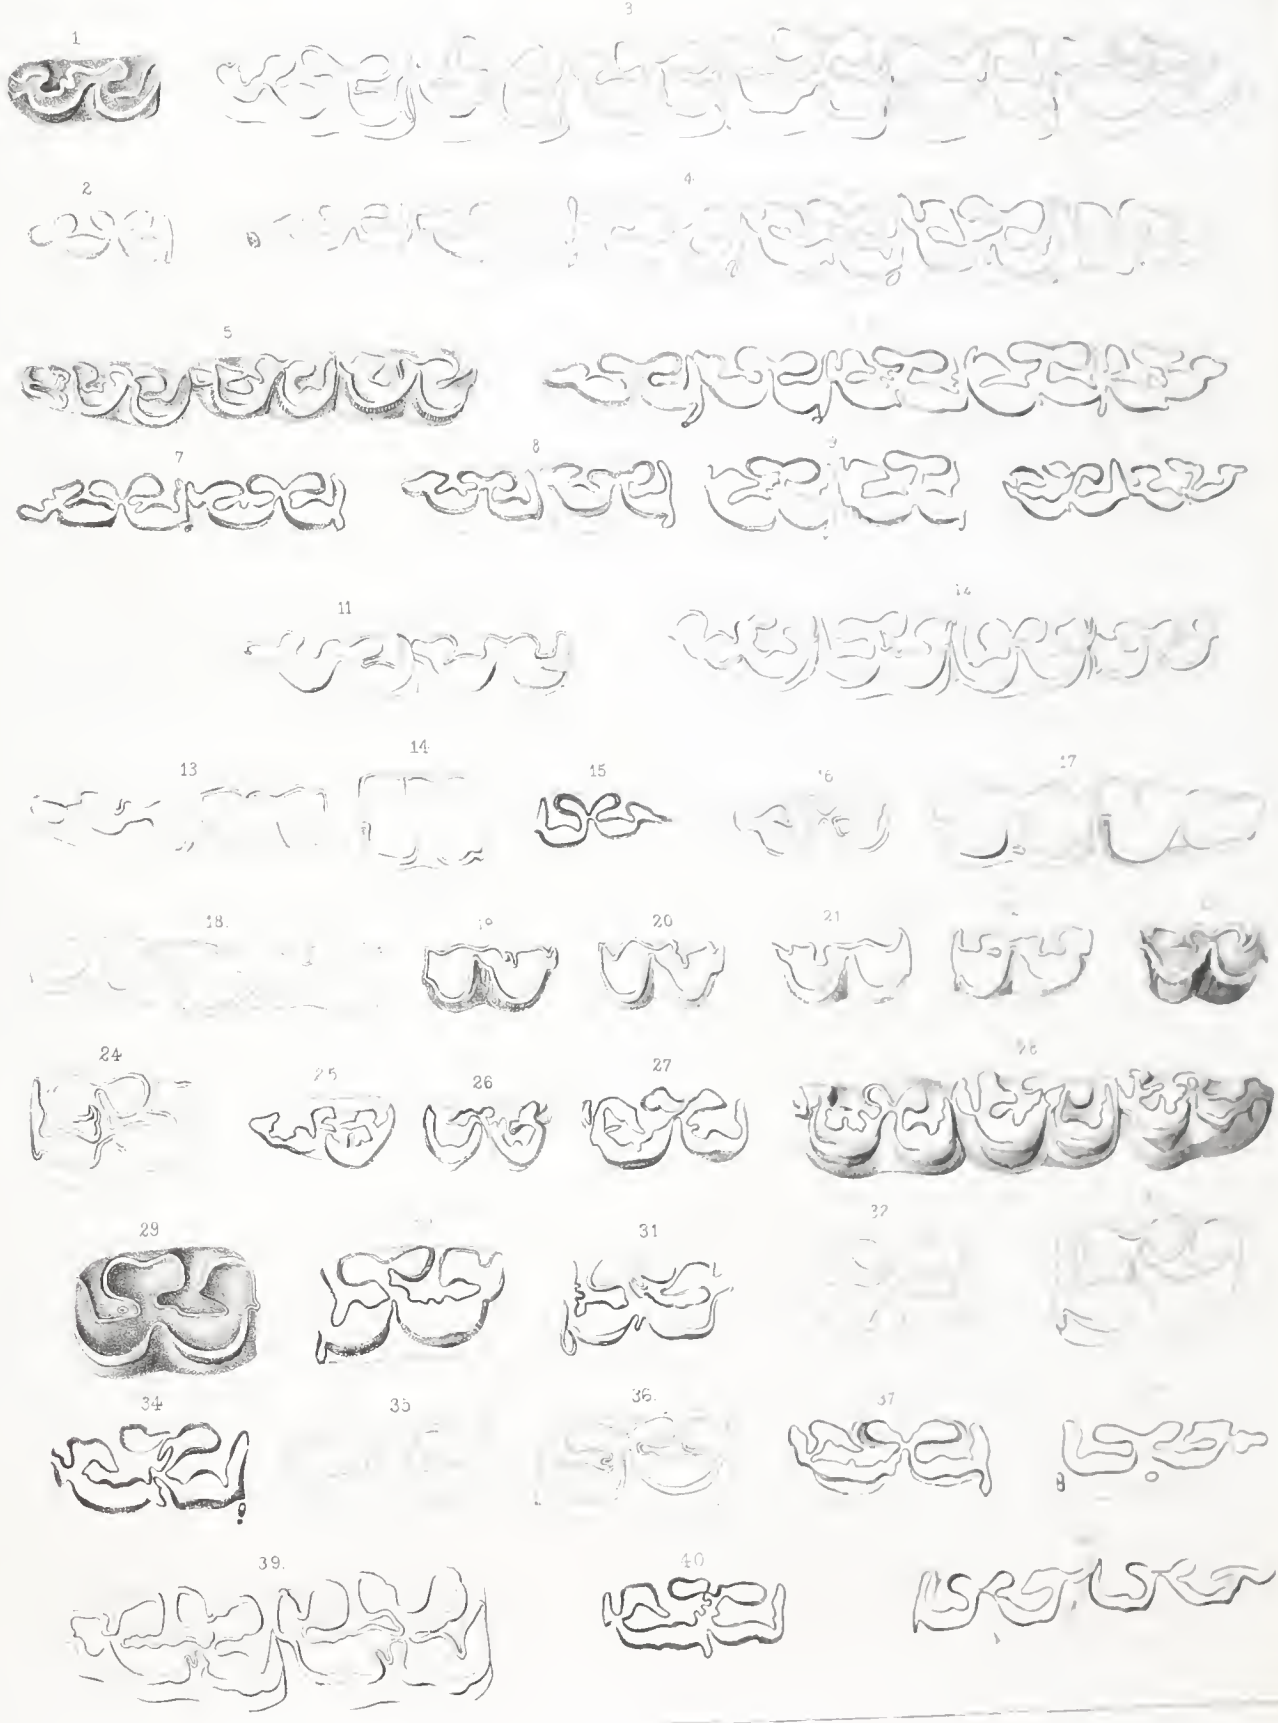 1
3
2
4.
5
7
8
9
11
12
13
14
15
16
17
18.
19
20
21
24
25
26
27
28
29
31
32
34
35
36.
37
39.
40